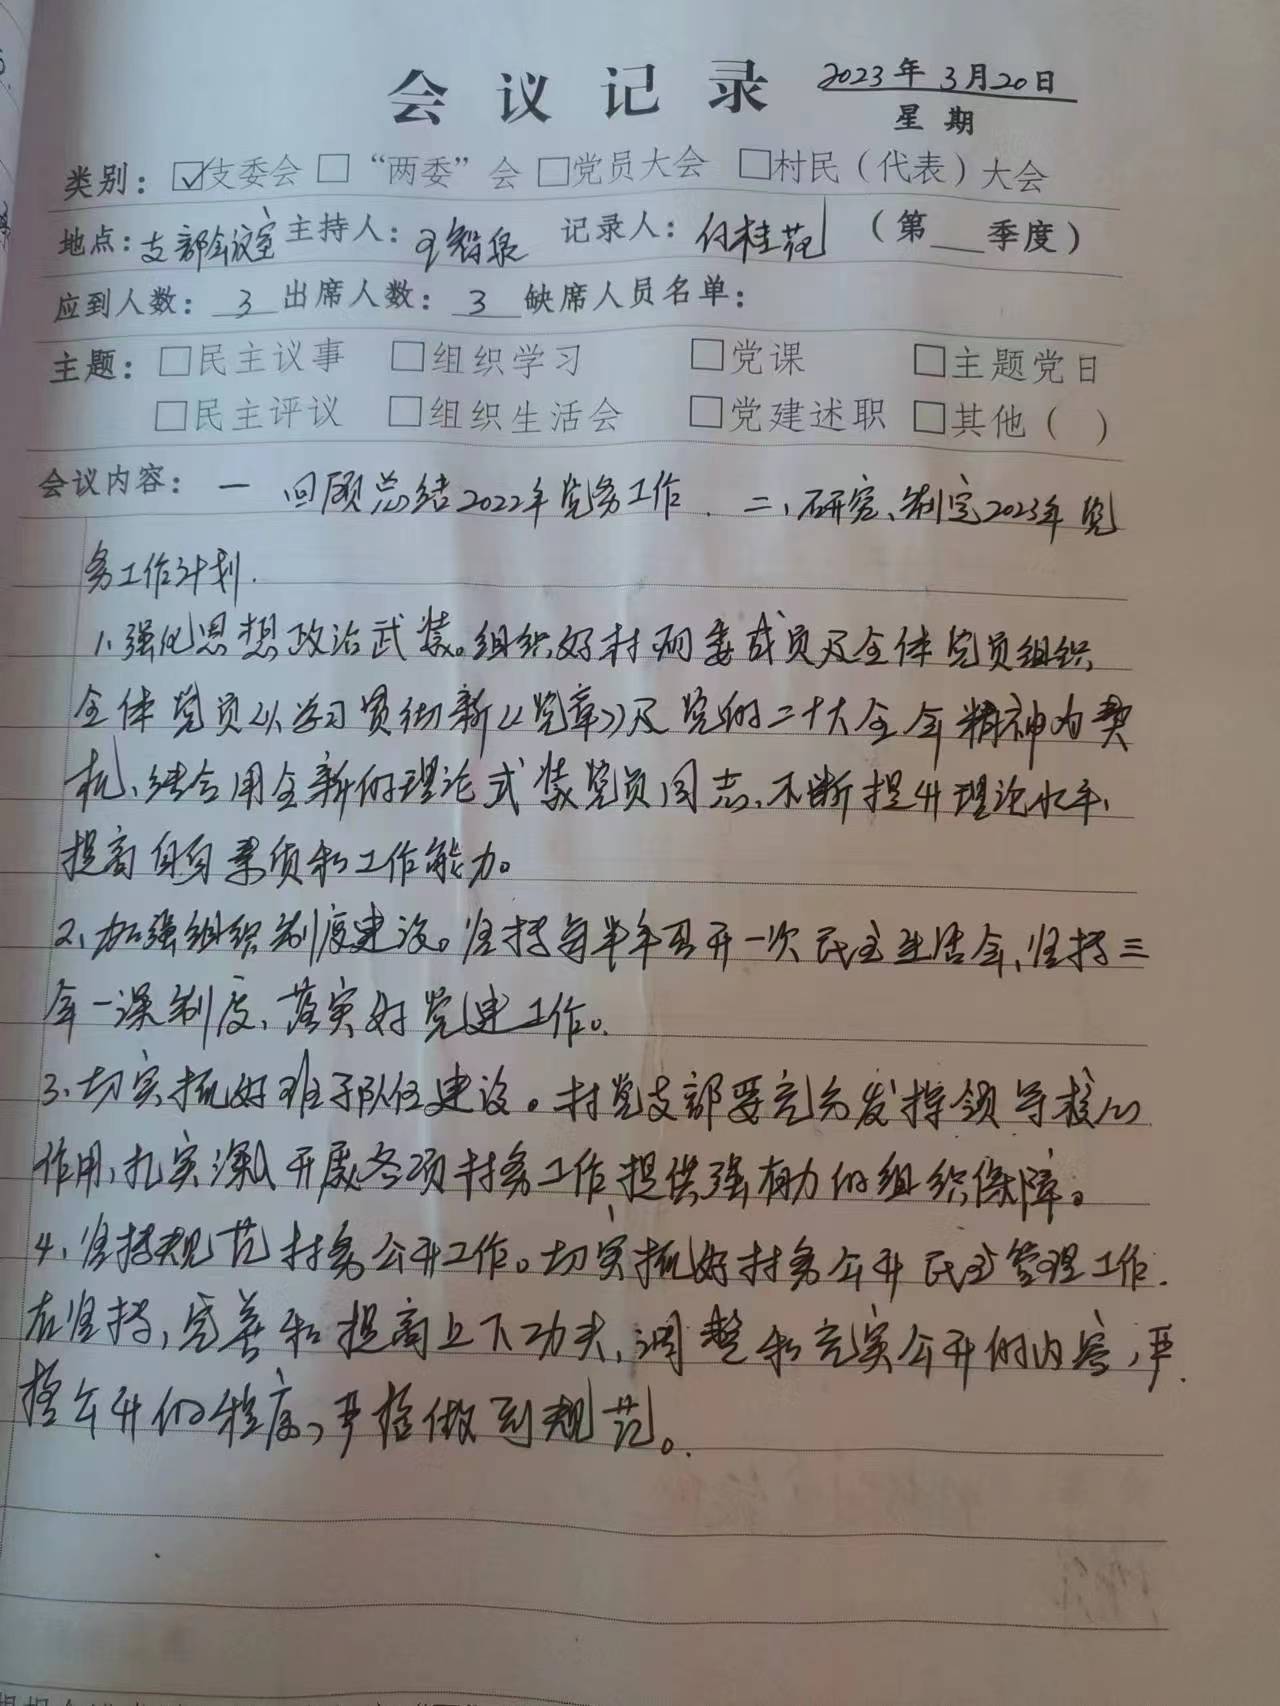 会议记录 2023年3月20日
星期
类别：☑支委会 □“两委”会 □党员大会 □村民（代表）大会
地点：支部会议室 主持人： 记录人：付桂花 （第 季度）
应到人数：3 出席人数：3 缺席人员名单：
主题：□民主议事 □组织学习 □党课 □主题党日
□民主评议 □组织生活会 □党建述职 □其他（ ）
会议内容：一 回顾总结2022年党务工作. 二、研究、制定2023年党
务工作计划.
1、强化思想政治武装。组织好村两委成员及全体党员组织
全体党员以学习贯彻新《党章》及党的二十大全会精神为契
机、结合用全新的理论武装党员同志、不断提升理论水平、
提高自身素质和工作能力。
2、加强组织制度建设。坚持每半年召开一次民主生活会、坚持三
会一课制度、落实好党建工作。
3、切实抓好班子队伍建设。村党支部要充分发挥领导核心
作用，扎实深入开展各项村务工作提供强有力的组织保障。
4、坚持规范村务公开工作。切实抓好村务公开民主管理工作.
在坚持，完善和提高上下功夫，调整和充实公开的内容，严
格公开的程度，严格做到规范。